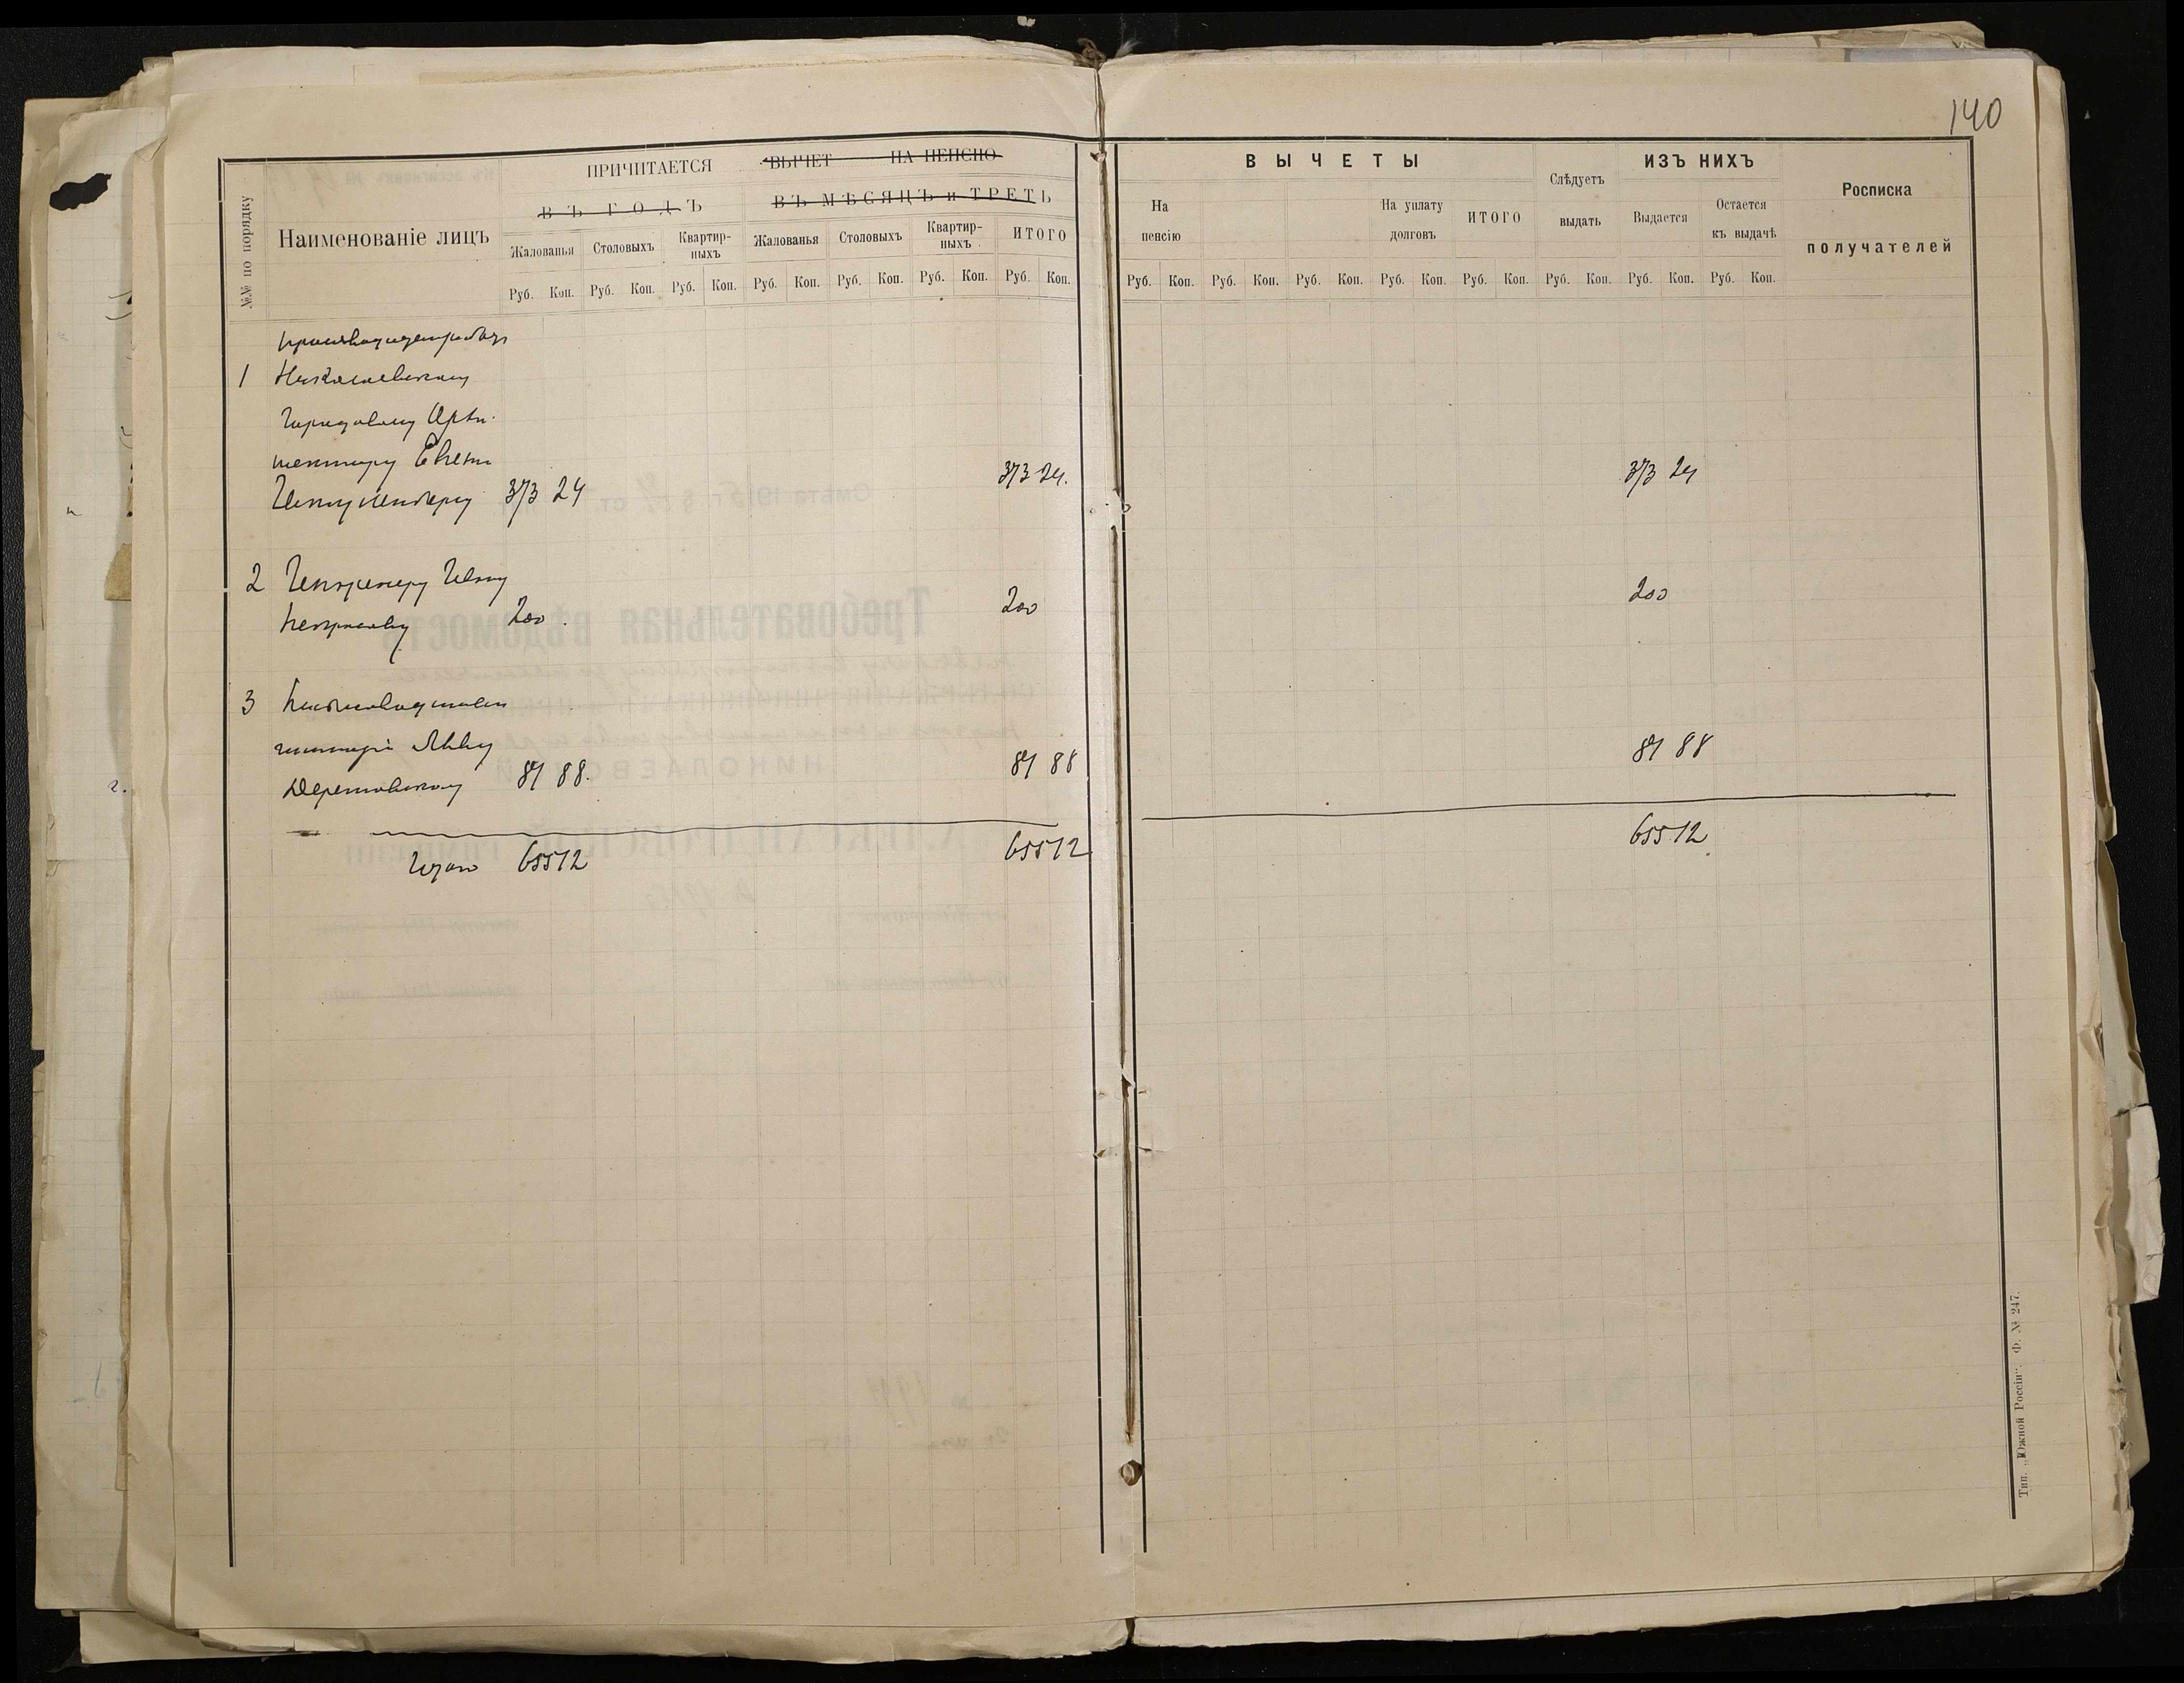 140
№№ по порядку
Наименованіе лицъ
ПРИЧИТАЕТСЯ ВЫЧЕТ НА ПЕНСІЮ
ВЪ ГОДЪ ВЪ МѢСЯЦЪ и ТРЕТЬ
Жалованья Столовыхъ Квартир-ныхъ Жалованья Столовыхъ Квартир-ныхъ ИТОГО
Руб. Коп. Руб. Коп. Руб. Коп. Руб. Коп. Руб. Коп. Руб. Коп. Руб. Коп.
ВЫЧЕТЫ
Слѣдуетъ выдать
ИЗЪ НИХЪ
Росписка получателей
На пенсію
На уплату долговъ
ИТОГО
Выдается
Остается къ выдачѣ
Руб. Коп. Руб. Коп. Руб. Коп. Руб. Коп. Руб. Коп. Руб. Коп. Руб. Коп. Руб. Коп.
1 Николаевскому
Городовому Архи-
тектору Евгению
Штукенбергу 373 24 373 24. 373 24
2 Инженеру
200 200 200
3
Льву
87 88. 87 88 87 88
Итого 655 12 655 12 655 12
Тип. „Южной Россіи“. Ф. № 247.